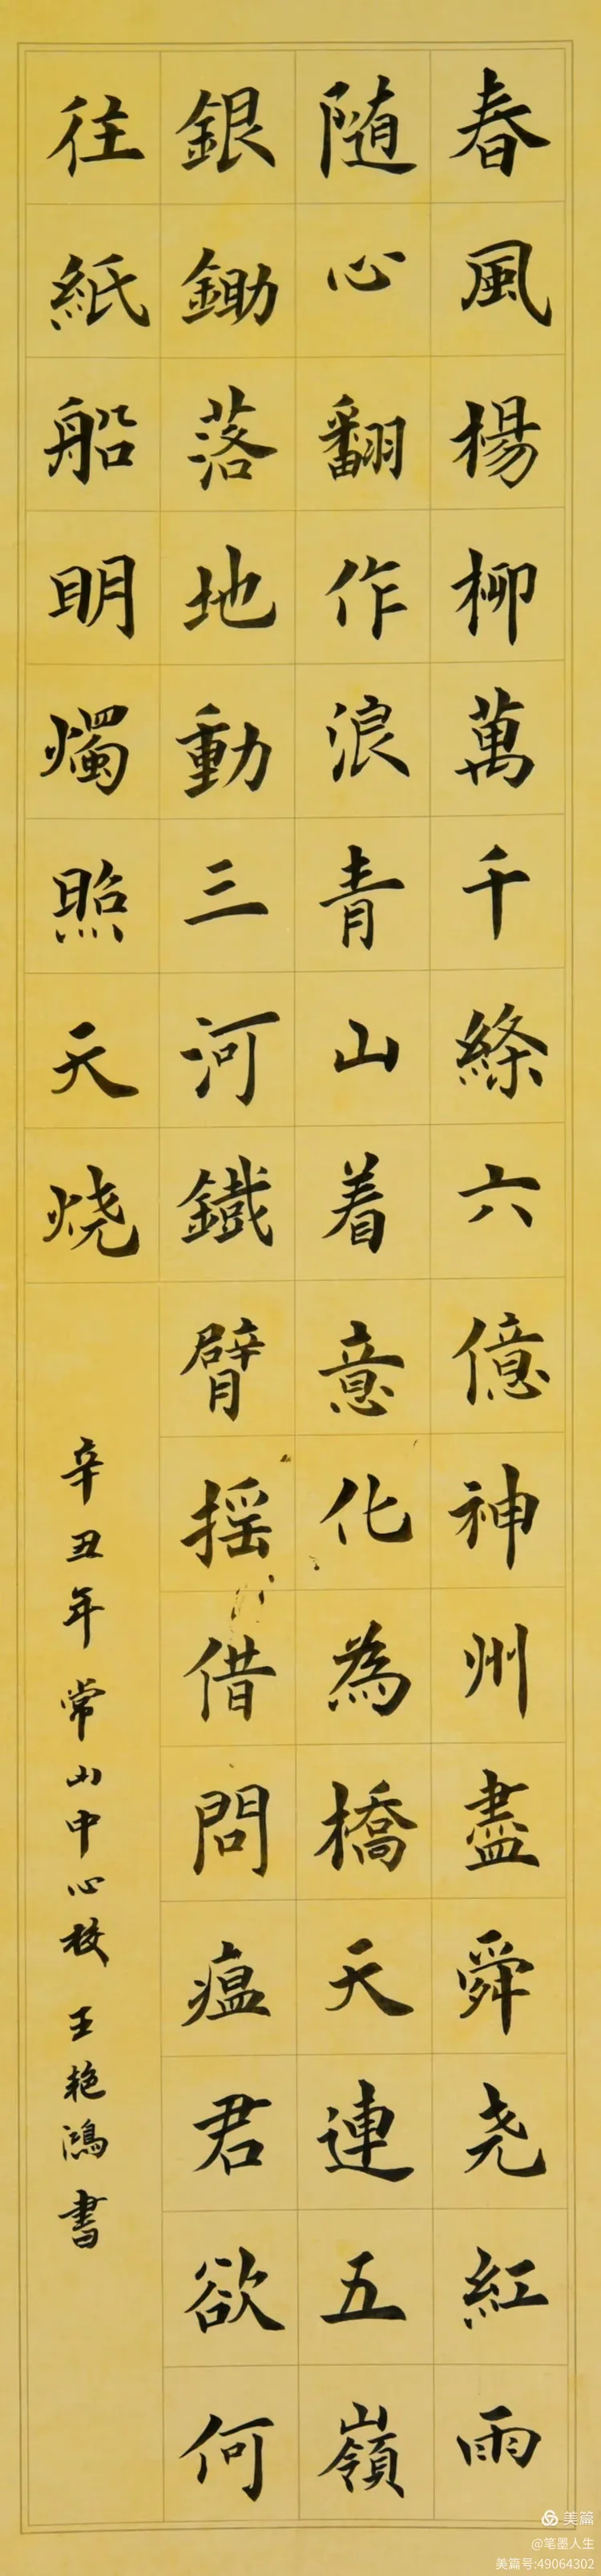 春風楊柳萬千條六億神州盡舜尧紅雨
随心翻作浪青山着意化為橋天連五嶺
銀鋤落地動三河鐵臂揺借問瘟君欲何
往紙船明燭照天烧
辛丑年常山中心校王艳鴻書
美篇
@笔墨人生
美篇号:49064302